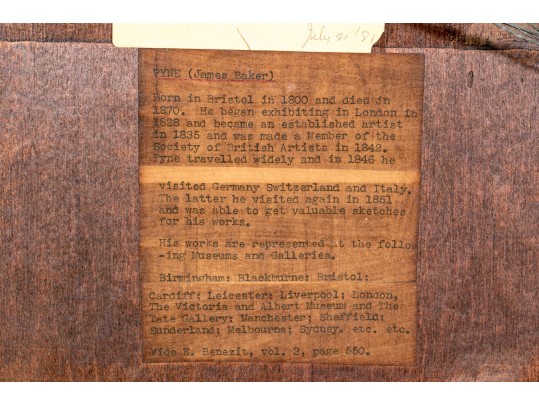 July 21 '81
PYNE (James Baker)
Born in Bristol in 1800 and died in
1870. He began exhibiting in London in
1828 and became an established artist
in 1835 and was made a Member of the
Society of British Artists in 1842.
Pyne travelled widely and in 1846 he
visited Germany Switzerland and Italy.
The latter he visited again in 1851
and was able to get valuable sketches
for his works.
His works are represented at the follow
-ing Museums and Galleries.
Birmingham: Blackburne: Bristol:
Cardiff: Leicester: Liverpool: London,
The Victoria and Albert Museum and The
Tate Gallery: Manchester: Sheffield:
Sunderland: Melbourne: Sydney. etc. etc.
Vide E. Benezit, vol. 3, page 550.